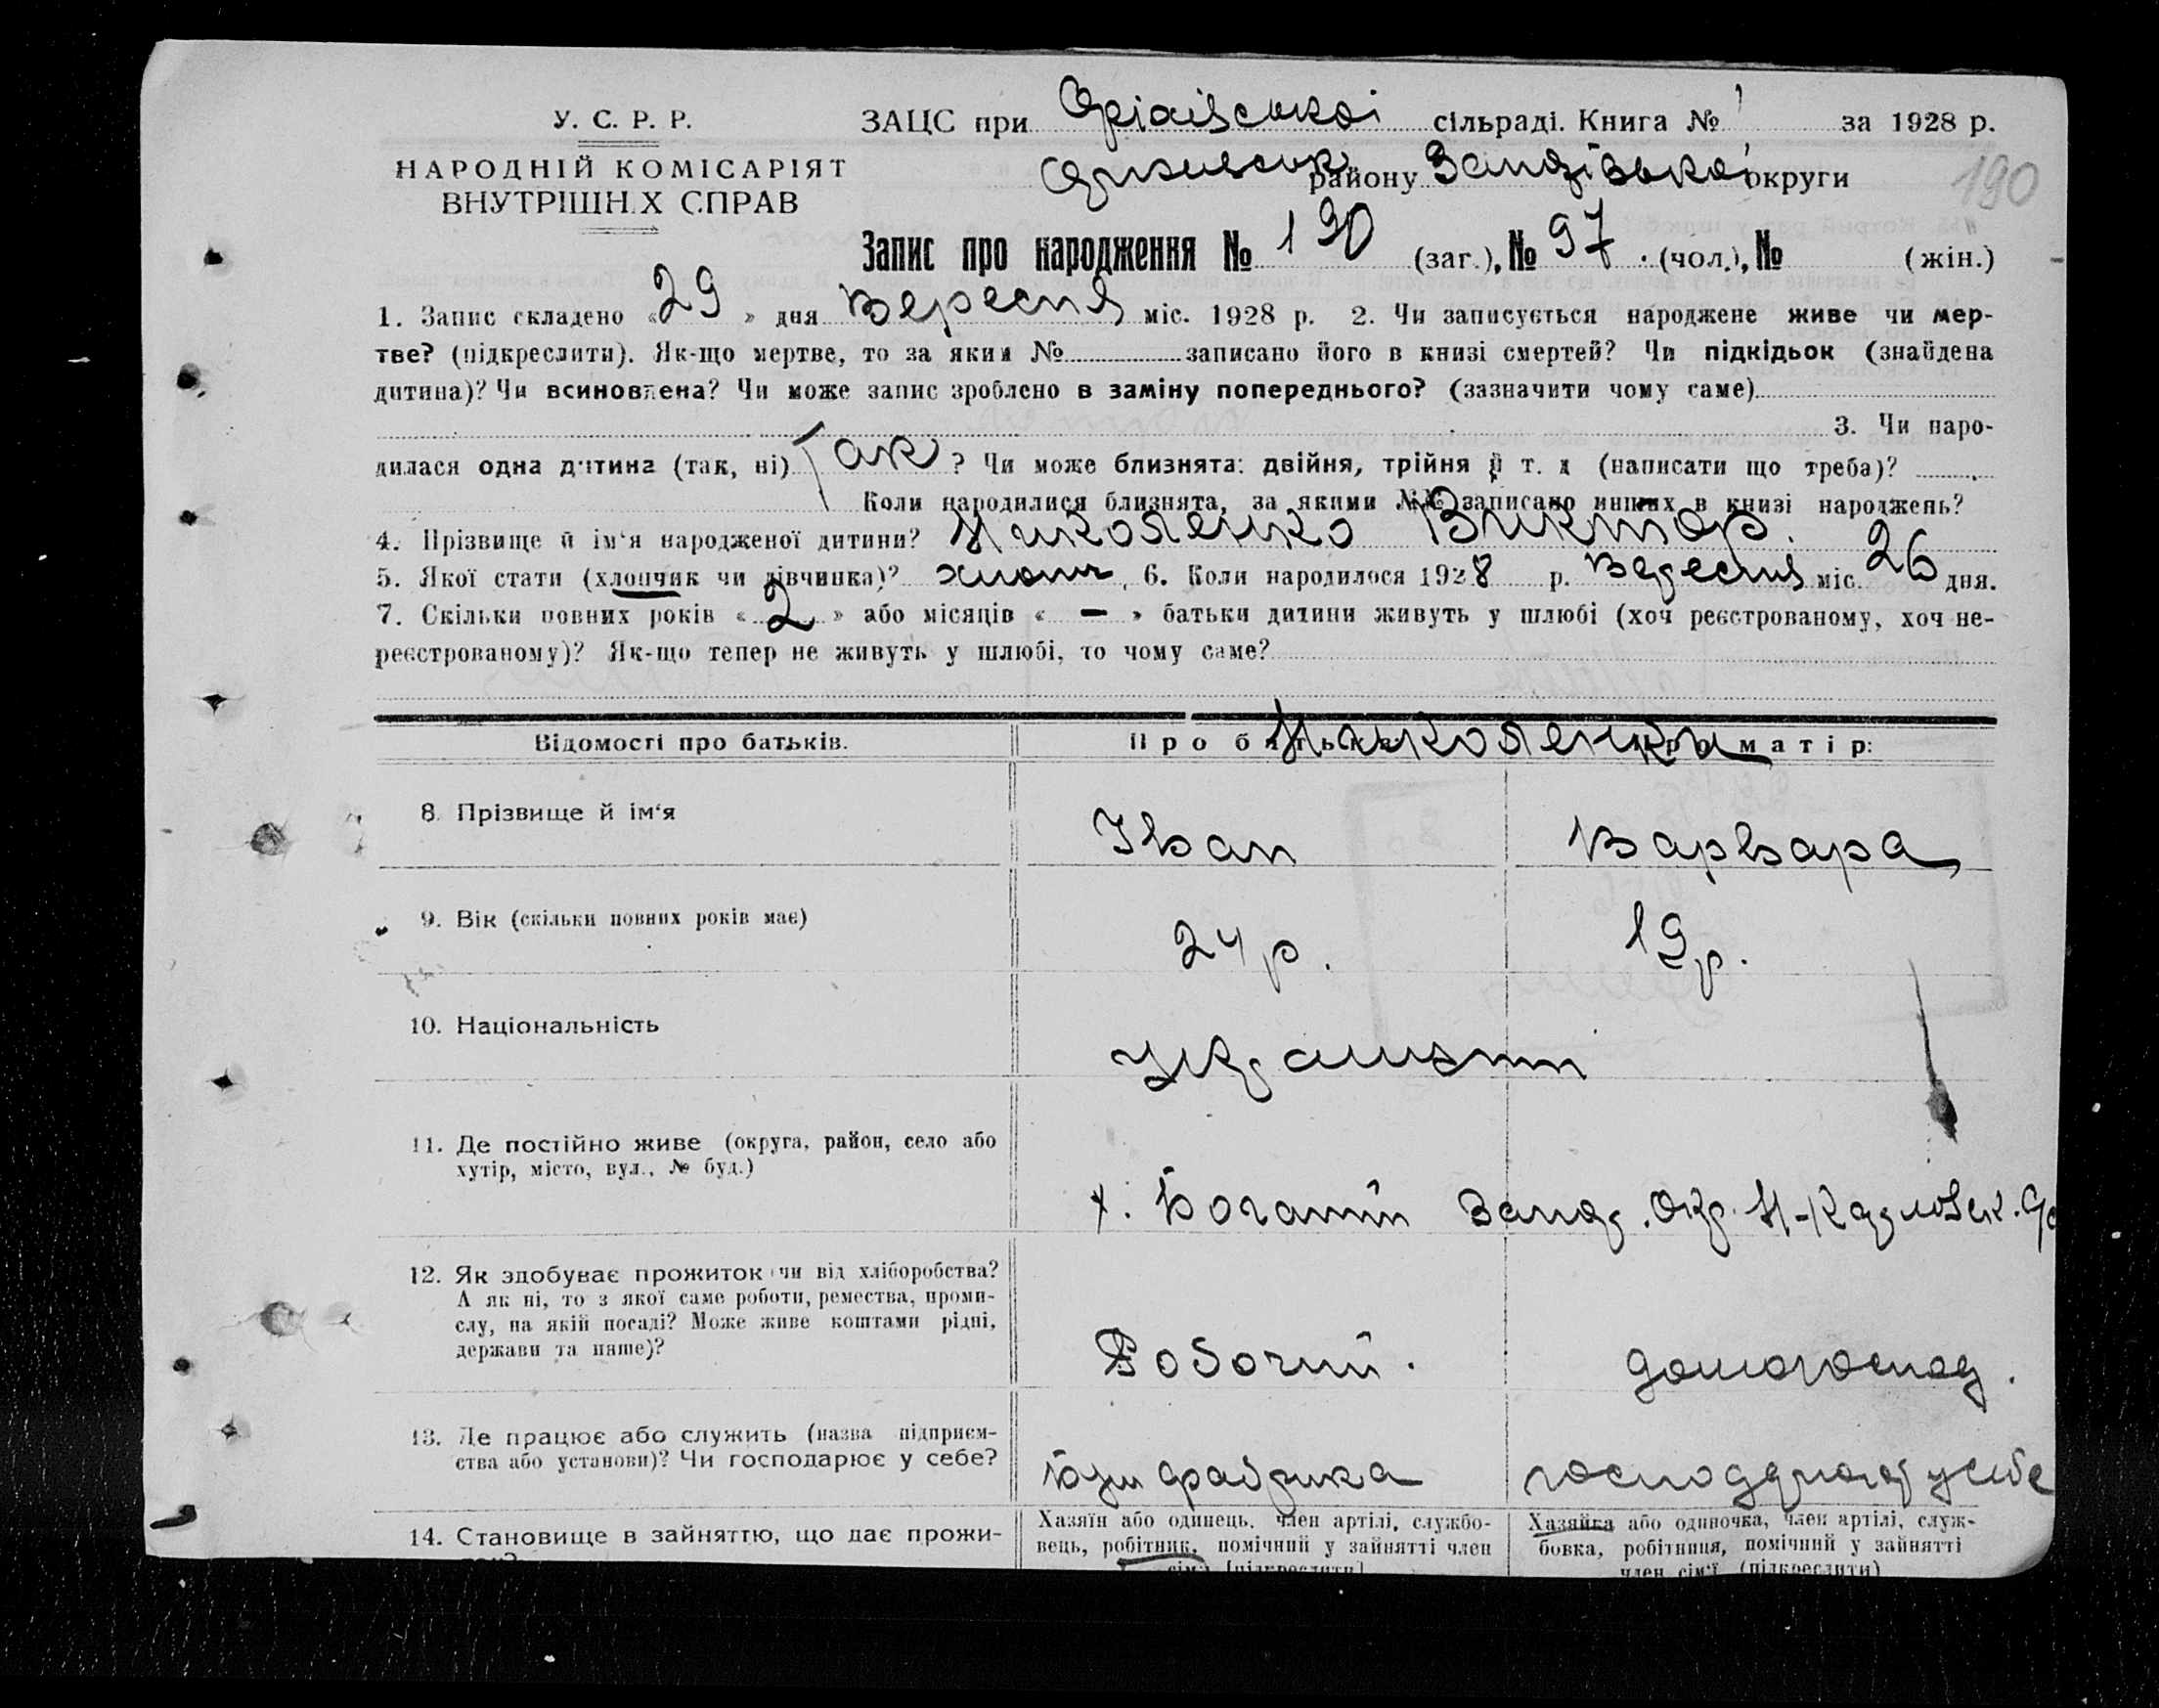 У. С. Р. Р.
НАРОДНІЙ КОМІСАРІЯТ
ВНУТРІШНІХ СПРАВ
ЗАЦС при сільраді. Книга № 1 за 1928 р.
району округи
190
Запис про народження № 190 (заг.), № 97 (чол.), № (жін.)
1. Запис складено «29» дня Вересня міс. 1928 р. 2. Чи записується народжене живе чи мер-
тве? (підкреслити). Як-що мертве, то за яким № записано його в книзі смертей? Чи підкідьок (знайдена
дитина)? Чи всиновлена? Чи може запис зроблено в заміну попереднього? (зазначити чому саме)
3. Чи наро-
дилася одна дитина (так, ні) Так ? Чи може близнята: двійня, трійня й т. д (написати що треба)?
Коли народилися близнята, за якими №№ записано инших в книзі народжень?
4. Прізвище й ім‘я народженої дитини? Николенко Виктор.
5. Якої стати (хлопчик чи дівчинка)? хлопч, 6. Коли народилося 1928 р. Вересня міс. 26 дня.
7. Скільки повних років «2» або місяців « — » батьки дитини живуть у шлюбі (хоч реєстрованому, хоч не-
реєстрованому)? Як-що тепер не живуть у шлюбі, то чому саме?
Відомості про батьків. Про батька: Про матір:
Николенки
8. Прізвище й ім‘я Іван Варвара
9. Вік (скільки повних років має) 24 р. 19 р.
10. Національність
11. Де постійно живе (округа, район, село або
хутір, місто, вул., № буд.)
х. Богатий Запор. Окр.
12. Як здобуває прожиток чи від хліборобства?
А як ні, то з якої саме роботи, ремества, проми-
слу, на якій посаді? Може живе коштами рідні,
держави та инше)?
Робочий. домогоспод.
13. Де працює або служить (назва підприєм-
ства або установи)? Чи господарює у себе?
фабрика у себе
14. Становище в зайняттю, що дає прожи-
Хазяїн або одинець, член артілі, службо-
вець, робітник, помічний у зайнятті член
сім‘ї (підкреслити)
Хазяйка або одиночка, член артілі, служ-
бовка, робітниця, помічний у зайнятті
член сім‘ї (підкреслити)